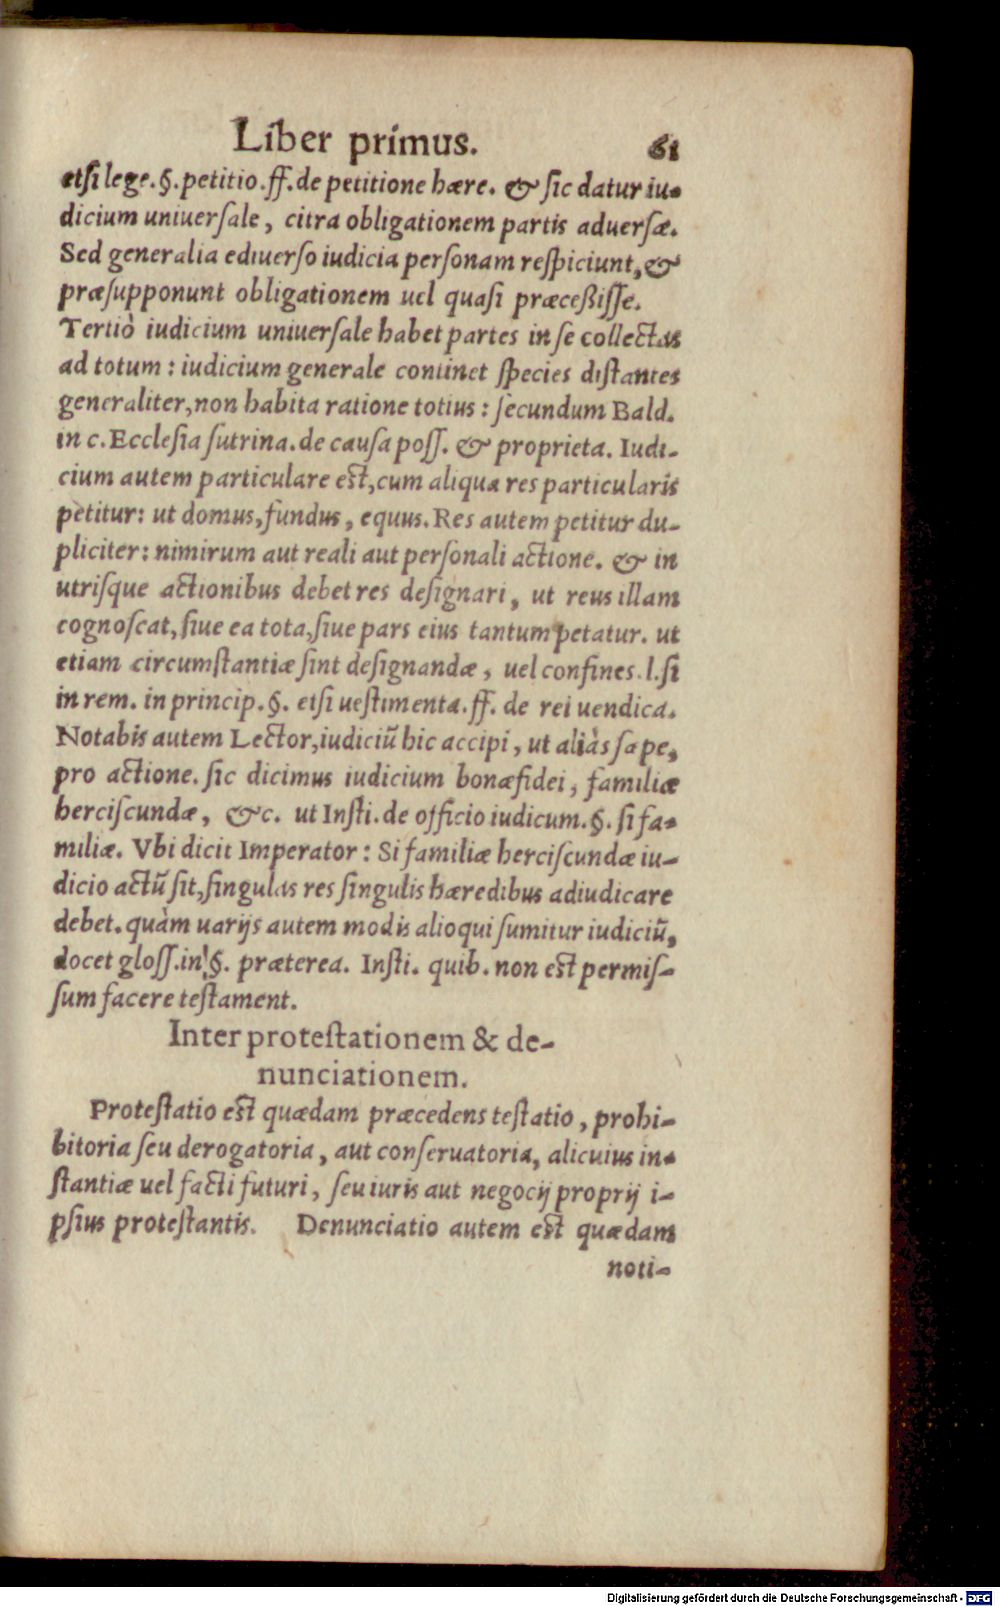 Liber primus. 61
etsi lege. §. petitio. ff. de petitione hære. & sic datur iu-
dicium uniuersale, citra obligationem partis aduersæ.
Sed generalia ediuerso iudicia personam respiciunt, &
præsupponunt obligationem uel quasi præceßisse.
Tertiò iudicium uniuersale habet partes in se collectas
ad totum: iudicium generale continet species distantes
generaliter, non habita ratione totius: secundum Bald.
in c. Ecclesia sutrina. de causa poss. & proprieta. Iudi-
cium autem particulare est, cum aliqua res particularis
petitur: ut domus, fundus, equus. Res autem petitur du-
pliciter: nimirum aut reali aut personali actione. & in
utrisque actionibus debet res designari, ut reus illam
cognoscat, siue ea tota, siue pars eius tantum petatur. ut
etiam circumstantiæ sint designandæ, uel confines. l. si
in rem. in princip. §. etsi uestimenta. ff. de rei uendica.
Notabis autem Lector, iudiciũ hic accipi, ut aliàs sæpe,
pro actione. sic dicimus iudicium bonæfidei, familiæ
herciscundæ, &c. ut Insti. de officio iudicum. §. si fa-
miliæ. Vbi dicit Imperator: Si familiæ herciscundæ iu-
dicio actũ sit, singulas res singulis hæredibus adiudicare
debet. quàm uarijs autem modis alioqui sumitur iudiciũ,
docet gloss. in §. præterea. Insti. quib. non est permis-
sum facere testament.
Inter protestationem & de-
nunciationem.
Protestatio est quædam præcedens testatio, prohi-
bitoria seu derogatoria, aut conseruatoria, alicuius in-
stantiæ uel facti futuri, seu iuris aut negocij proprij i-
psius protestantis. Denunciatio autem est quædam
noti-
Digitalisierung gefördert durch die Deutsche Forschungsgemeinschaft - DFG